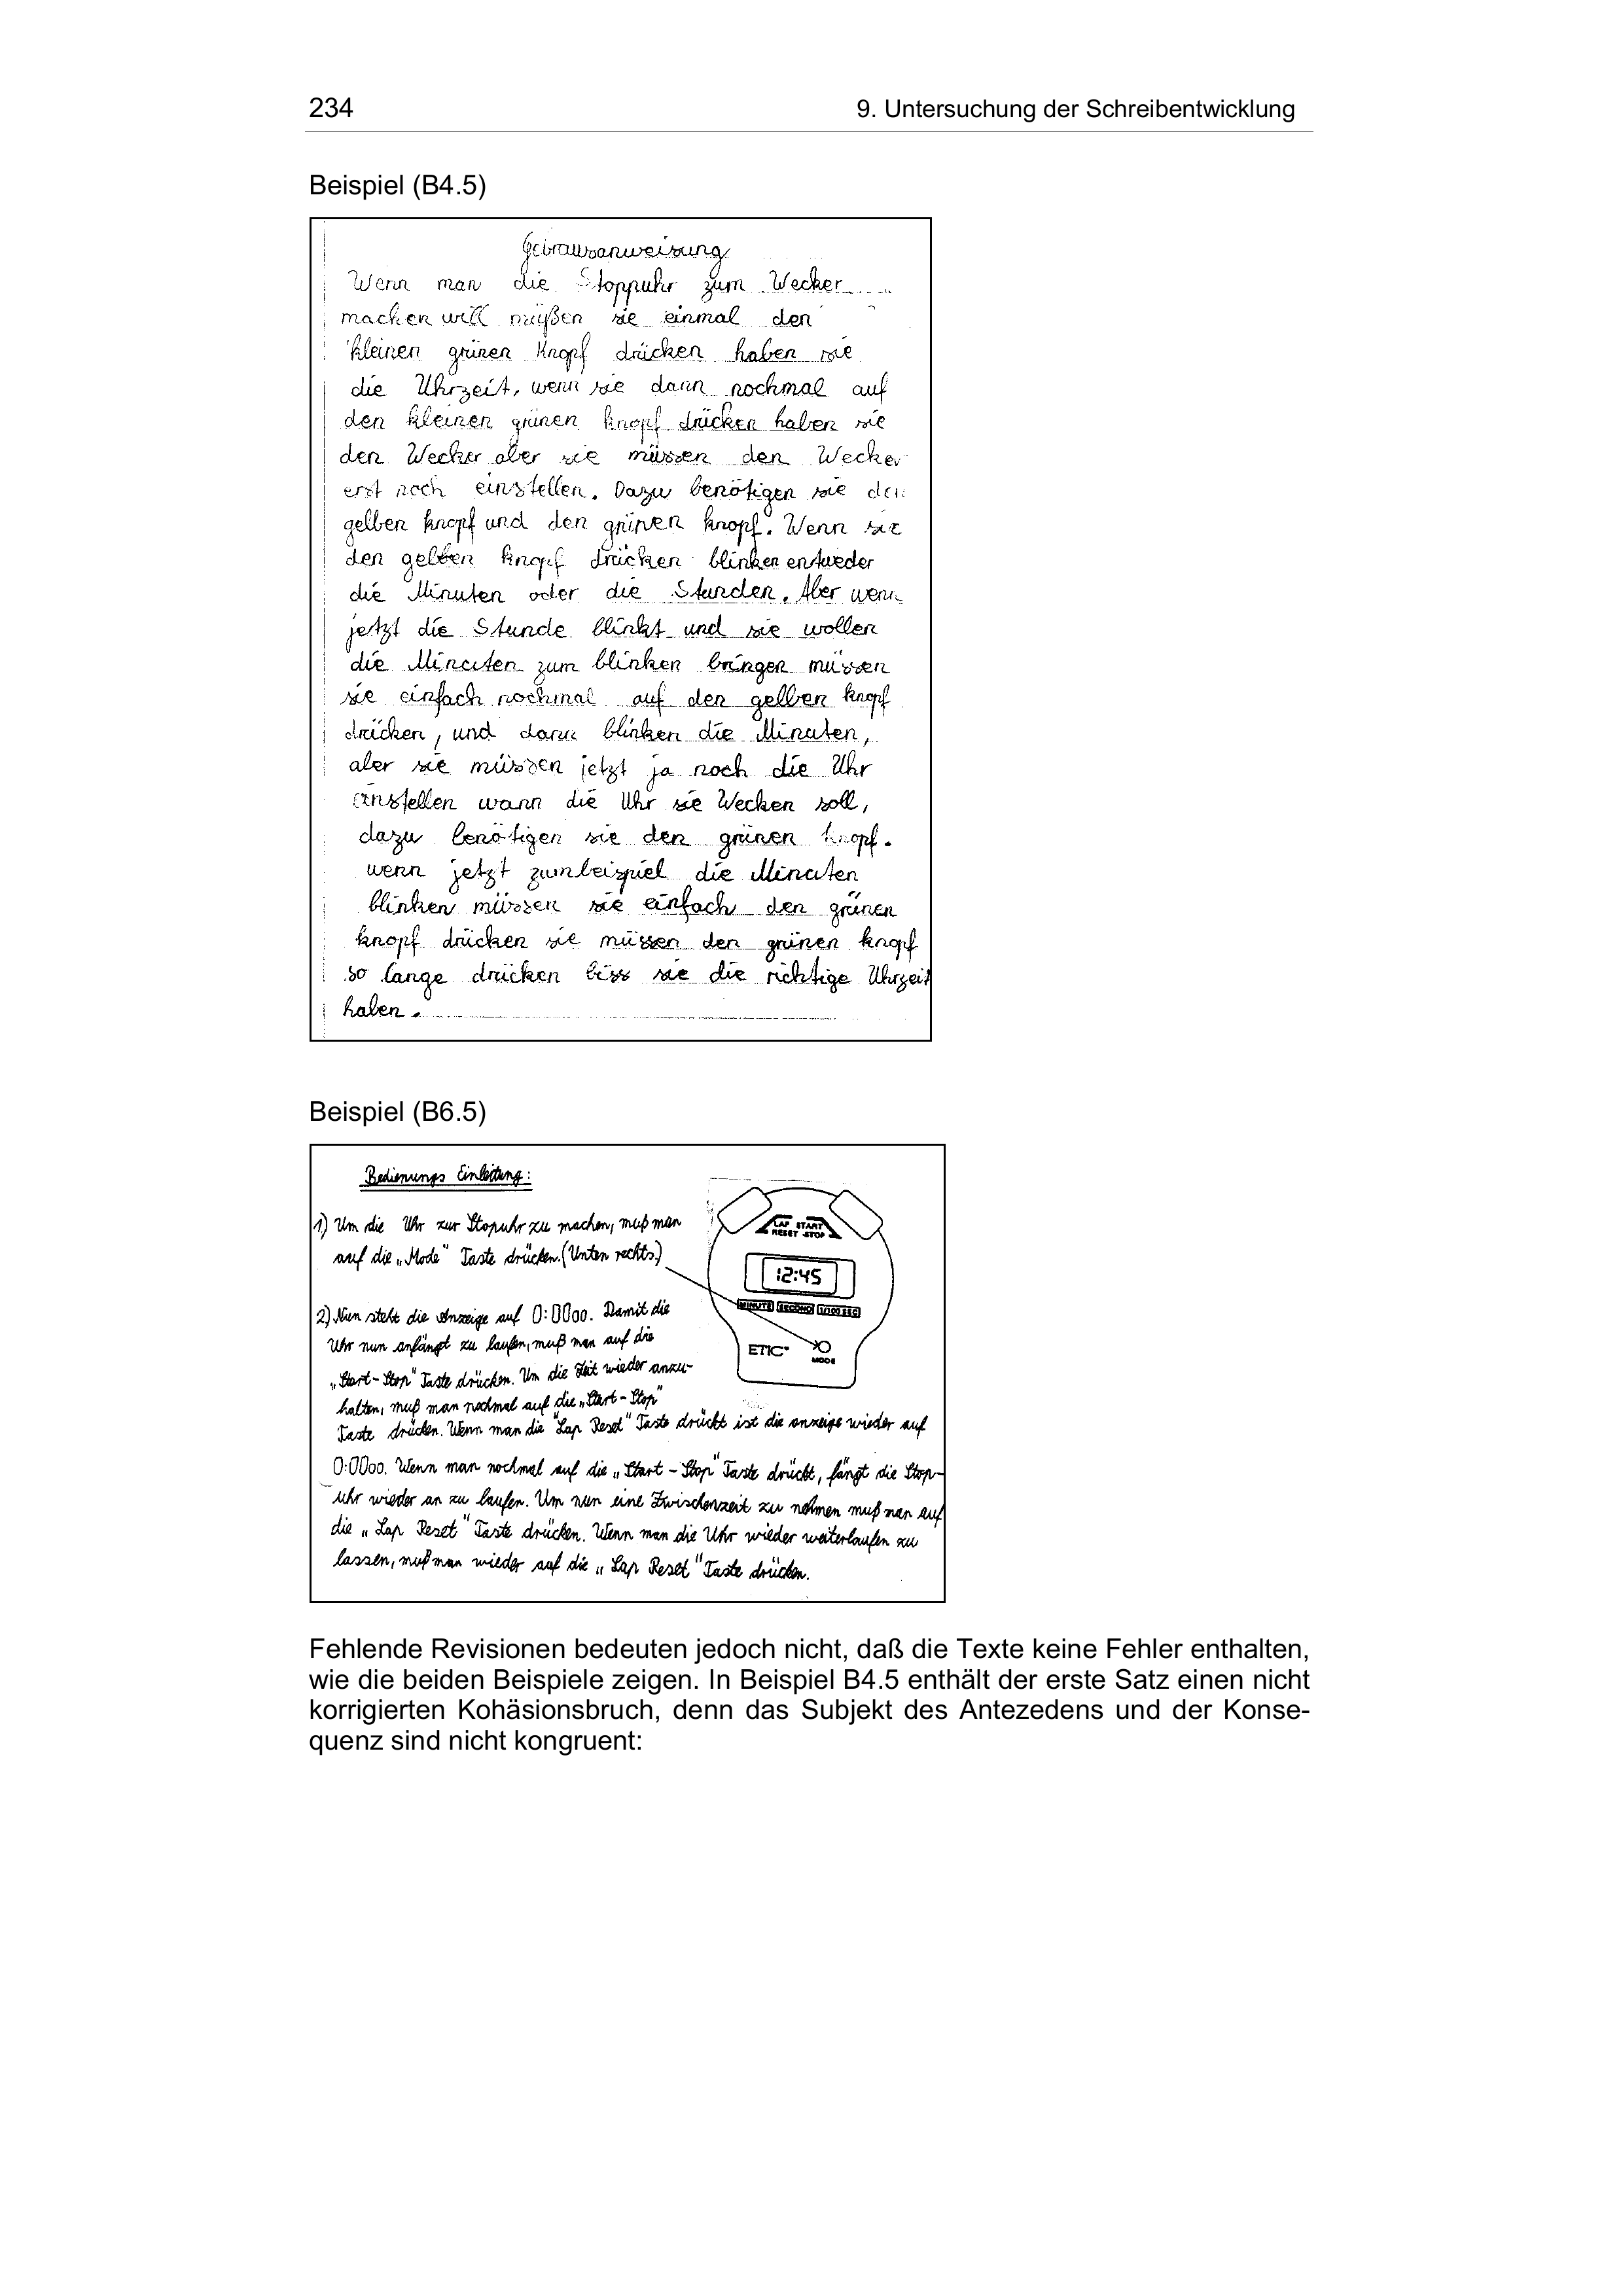 234
9. Untersuchung der Schreibentwicklung
Beispiel (B4.5)
Gebrausanweisung
Wenn man die Stoppuhr zum Wecker
machen will müßen sie einmal den
kleinen grünen Knopf drücken haben sie
die Uhrzeit, wenn sie dann nochmal auf
den kleinen grünen knopf drücken haben sie
den Wecker aber sie müssen den Wecker
erst noch einstellen. Dazu benötigen sie den
gelben knopf und den grünen knopf. Wenn sie
den gelben knopf drücken blinken entweder
die Minuten oder die Stunden. Aber wenn
jetzt die Stunde blinkt und sie wollen
die Minuten zum blinken bringen müssen
sie einfach nochmal auf den gelben knopf
drücken, und dann blinken die Minuten,
aber sie müssen jetzt ja noch die Uhr
einstellen wann die Uhr sie Wecken soll,
dazu benötigen sie den grünen knopf.
wenn jetzt zumbeispiel die Minuten
blinken müssen sie einfach den grünen
knopf drücken sie müssen den grünen knopf
so lange drücken biss sie die richtige Uhrzeit
haben.
Beispiel (B6.5)
Bedienungs Einleitung:
1) Um die Uhr zur Stopuhr zu machen, muß man
auf die „Mode" Taste drücken. (Unten rechts.)
LAP START
RESET STOP
12:45
MINUTE SECOND 1/100 SEC
ETIC
MODE
2) Nun steht die Anzeige auf 0:0000. Damit die
Uhr nun anfängt zu laufen, muß man auf die
„Start-Stop" Taste drücken. Um die Zeit wieder anzu-
halten, muß man nochmal auf die „Start-Stop"
Taste drücken. Wenn man die "Lap Reset" Taste drückt ist die anzeige wieder auf
0:0000. Wenn man nochmal auf die „Start-Stop" Taste drückt, fängt die Stop-
uhr wieder an zu laufen. Um nun eine Zwischenzeit zu nehmen muß man auf
die „Lap Reset" Taste drücken. Wenn man die Uhr wieder weiterlaufen zu
lassen, muß man wieder auf die „Lap Reset" Taste drücken.
Fehlende Revisionen bedeuten jedoch nicht, daß die Texte keine Fehler enthalten,
wie die beiden Beispiele zeigen. In Beispiel B4.5 enthält der erste Satz einen nicht
korrigierten Kohäsionsbruch, denn das Subjekt des Antezedens und der Konse-
quenz sind nicht kongruent: